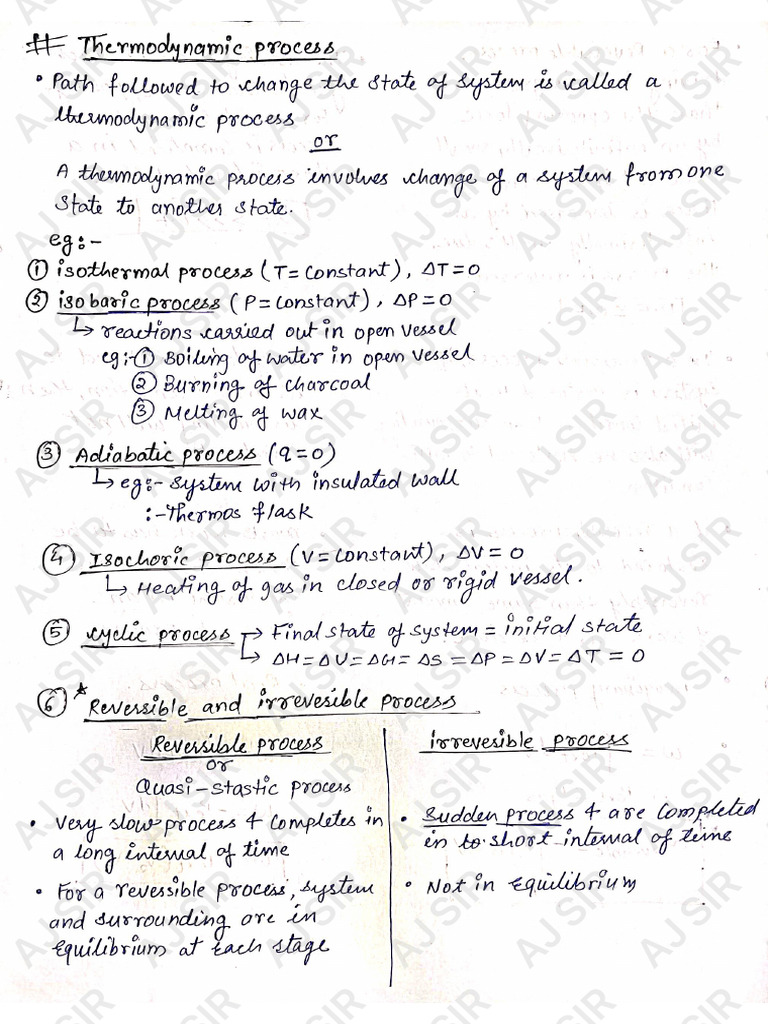 # Thermodynamic process
• Path followed to change the state of system is called a
thermodynamic process
or
A thermodynamic process involves change of a system from one
state to another state.
eg:-
① isothermal process (T = constant), ΔT = 0
② isobaric process (P = constant), ΔP = 0
↳ reactions carried out in open vessel
eg:- ① Boiling of water in open vessel
② Burning of charcoal
③ Melting of wax
③ Adiabatic process (q = 0)
↳ eg:- System with insulated wall
:- Thermos flask
④ Isochoric process (V = constant), ΔV = 0
↳ Heating of gas in closed or rigid vessel.
⑤ cyclic process → Final state of system = initial state
↳ ΔH = ΔU = ΔG = ΔS = ΔP = ΔV = ΔT = 0
⑥ * Reversible and irrevesible process
Reversible process
or
Quasi-Stastic process
• Very slow process & completes in
a long interval of time
• For a reversible process, system
and surrounding are in
equilibrium at each stage
irrevesible process
• Sudden process & are completed
in to short interval of time
• Not in equilibrium
AJ SIR